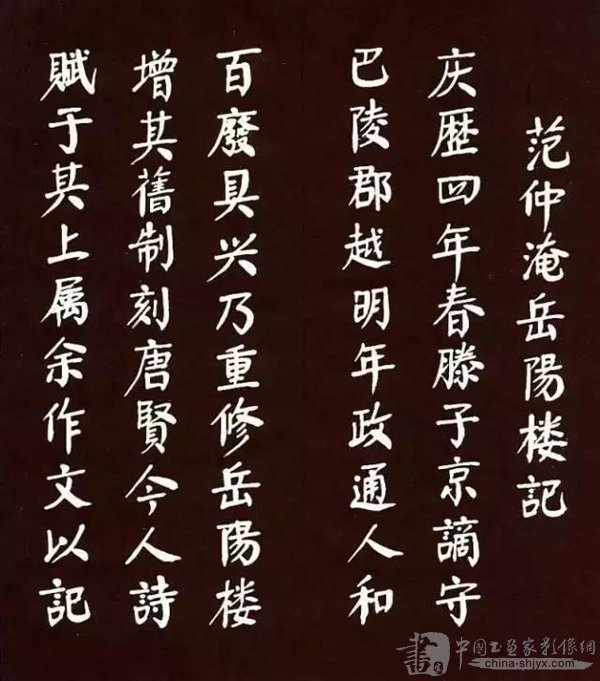 范仲淹岳陽楼記
庆歷四年春滕子京謫守
巴陵郡越明年政通人和
百廢具兴乃重修岳陽楼
增其舊制刻唐賢今人詩
赋于其上属余作文以記
書 中国书画家影像網
china-shjyx.com